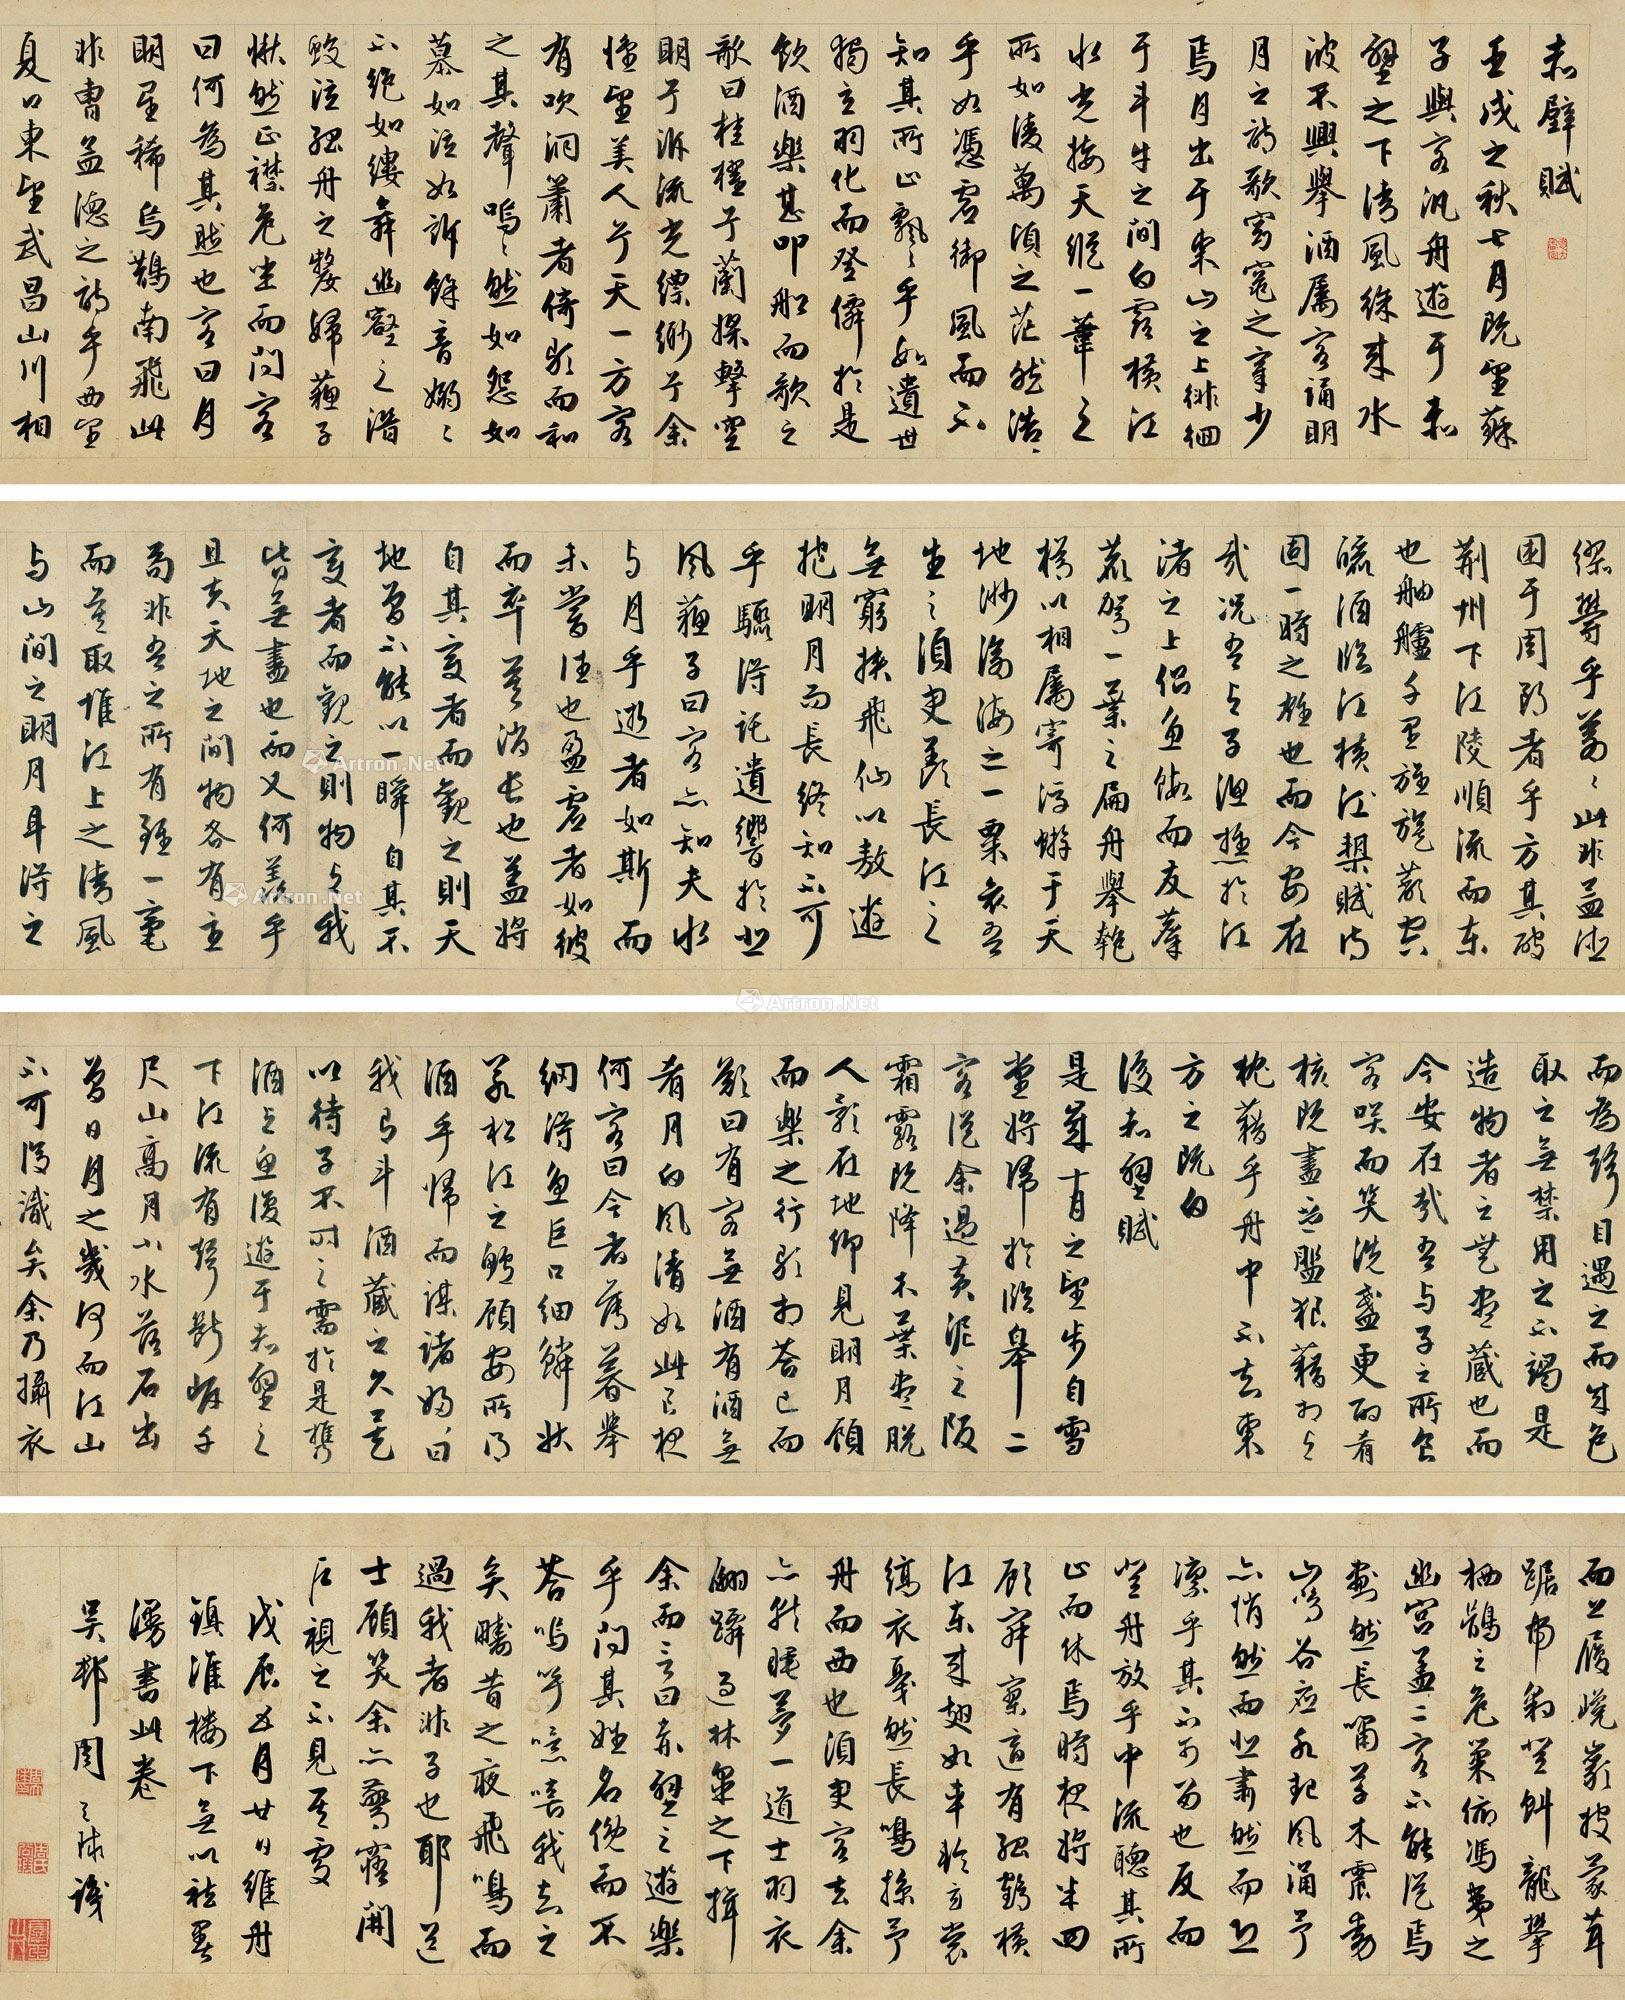 赤壁賦
壬戌之秋七月既望蘇
子與客汎舟遊于赤
壁之下清風徐来水
波不興舉酒屬客誦明
月之詩歌窈窕之章少
焉月出于東山之上徘徊
于斗牛之間白露橫江
水光接天縱一葦之
所如凌萬頃之茫然浩〻
乎如憑虛御風而不
知其所止飄〻乎如遺世
獨立羽化而登僊於是
飲酒樂甚叩舷而歌之
歌曰桂櫂兮蘭槳擊空
明兮泝流光縹緲兮余
懷望美人兮天一方客
有吹洞簫者倚歌而和
之其聲嗚〻然如怨如
慕如泣如訴餘音嫋〻
不絕如縷舞幽壑之潛
蛟泣孤舟之嫠婦蘇子
愀然正襟危坐而問客
曰何為其然也客曰月
明星稀烏鵲南飛此
非曹孟德之詩乎西望
夏口東望武昌山川相
繆鬱乎蒼〻此非孟德
困于周郎者乎方其破
荊州下江陵順流而東
也舳艫千里旌旗蔽空
釃酒臨江橫槊賦詩
固一時之雄也而今安在
哉況吾與子漁樵於江
渚之上侶魚蝦而友麋
鹿駕一葉之扁舟舉匏
樽以相屬寄浮蝣于天
地渺滄海之一粟哀吾
生之須臾羨長江之
無窮挾飛仙以敖遊
抱明月而長終知不可
乎驟得託遺響於悲
風蘇子曰客亦知夫水
与月乎逝者如斯而
未嘗往也盈虛者如彼
而卒莫消長也蓋將
自其變者而觀之則天
地曾不能以一瞬自其不
變者而觀之則物与我
皆無盡也而又何羨乎
且夫天地之間物各有主
苟非吾之所有雖一毫
而莫取惟江上之清風
与山間之明月耳得之
而為聲目遇之而成色
取之無禁用之不竭是
造物者之無盡藏也而
今安在哉吾与子之所食
客喜而笑洗盞更酌肴
核既盡杯盤狼藉相与
枕藉乎舟中不知東
方之既白
後赤壁賦
是歲十月之望步自雪
堂將歸於臨皋二
客從余過黃泥之阪
霜露既降木葉盡脫
人影在地仰見明月顧
而樂之行歌相答已而
歎曰有客無酒有酒無
肴月白風清如此良夜
何客曰今者薄暮舉
網得魚巨口細鱗狀
若松江之鱸顧安所得
酒乎歸而謀諸婦〻曰
我有斗酒藏之久矣
以待子不時之需於是攜
酒与魚復遊于赤壁之
下江流有聲斷岸千
尺山高月小水落石出
曾日月之幾何而江山
不可復識矣余乃攝衣
而上履巉巖披蒙茸
踞虎豹登虯龍攀
栖鶻之危巢俯馮夷之
幽宮蓋二客不能從焉
劃然長嘯草木震動
山鳴谷應水起風涌予
亦悄然而悲肅然而恐
凜乎其不可留也反而
登舟放乎中流聽其所
止而休焉時夜將半四
顧寂寥適有孤鶴橫
江東来翅如車輪玄裳
縞衣戛然長鳴掠予
舟而西也須臾客去余
亦就睡夢一道士羽衣
翩躚過林皋之下揖
余而言曰赤壁之遊樂
乎問其姓名俛而不
答嗚呼噫嘻我知之
矣疇昔之夜飛鳴而
過我者非子也耶道
士顧笑余亦驚寤開
戶視之不見其處
戊辰五月廿日維舟
鎮淮樓下無以祛暑
漫書此卷
吳郡周之球識
Artron.Net
Artron.Net
Artron.Net